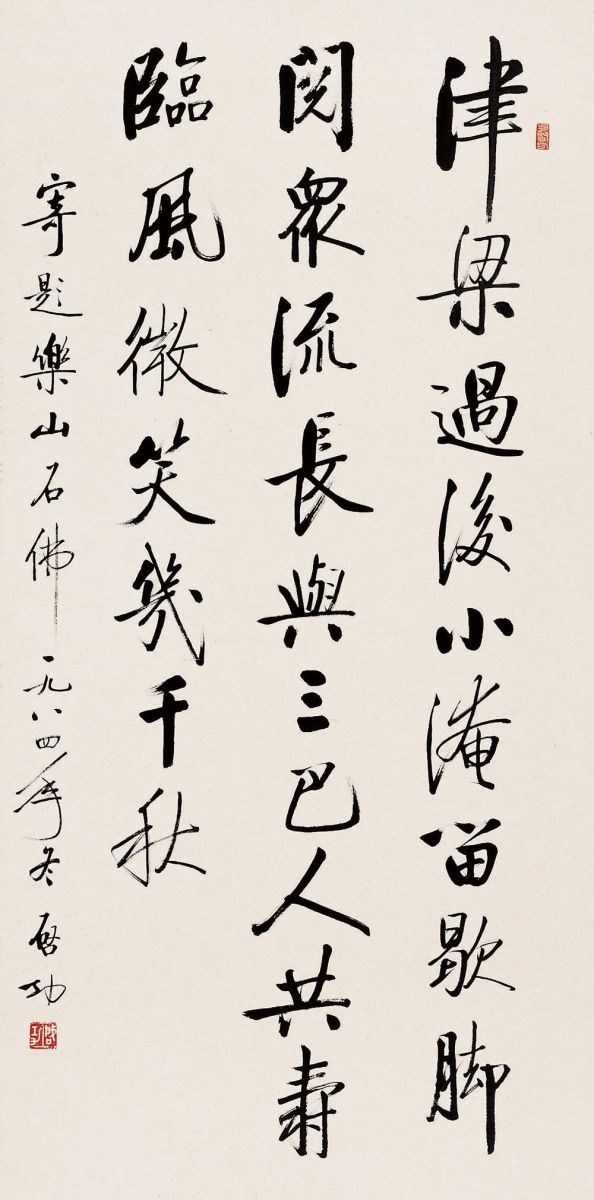 津梁過後小淹留歇脚
閱衆流長與三巴人共壽
臨風微笑幾千秋
寄題樂山石佛 一九八四年冬 啓功
啓功